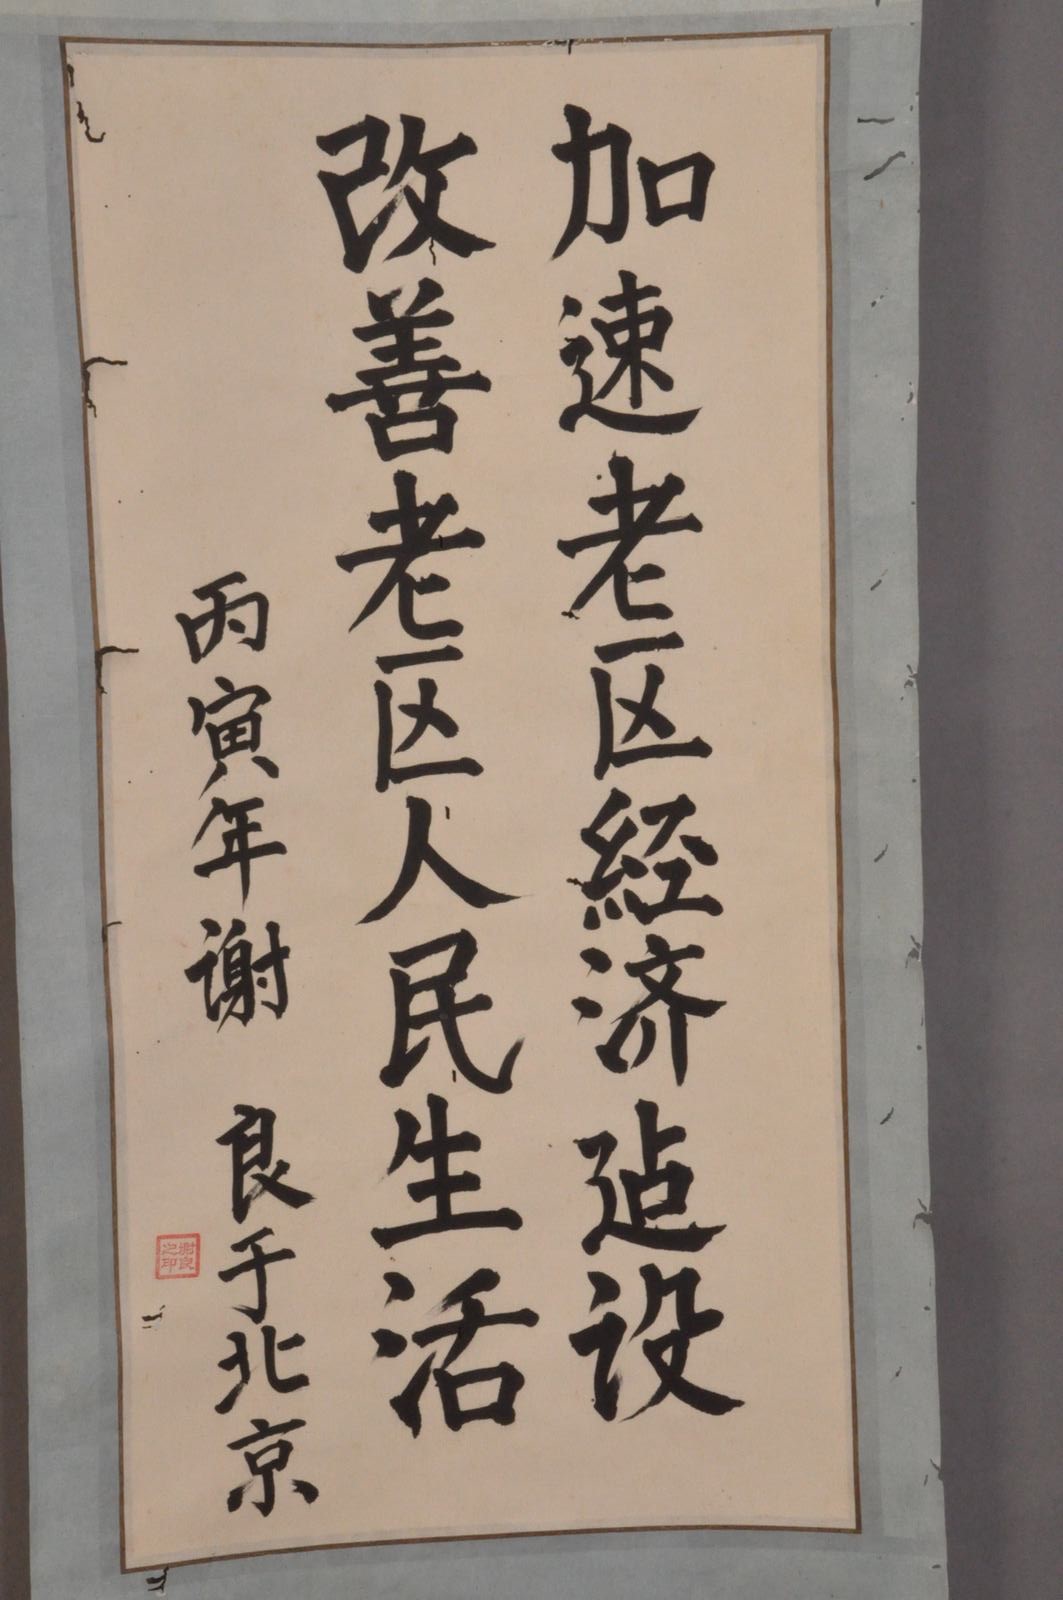 加速老区经济迠设
改善老区人民生活
丙寅年谢 良于北京
谢良之印